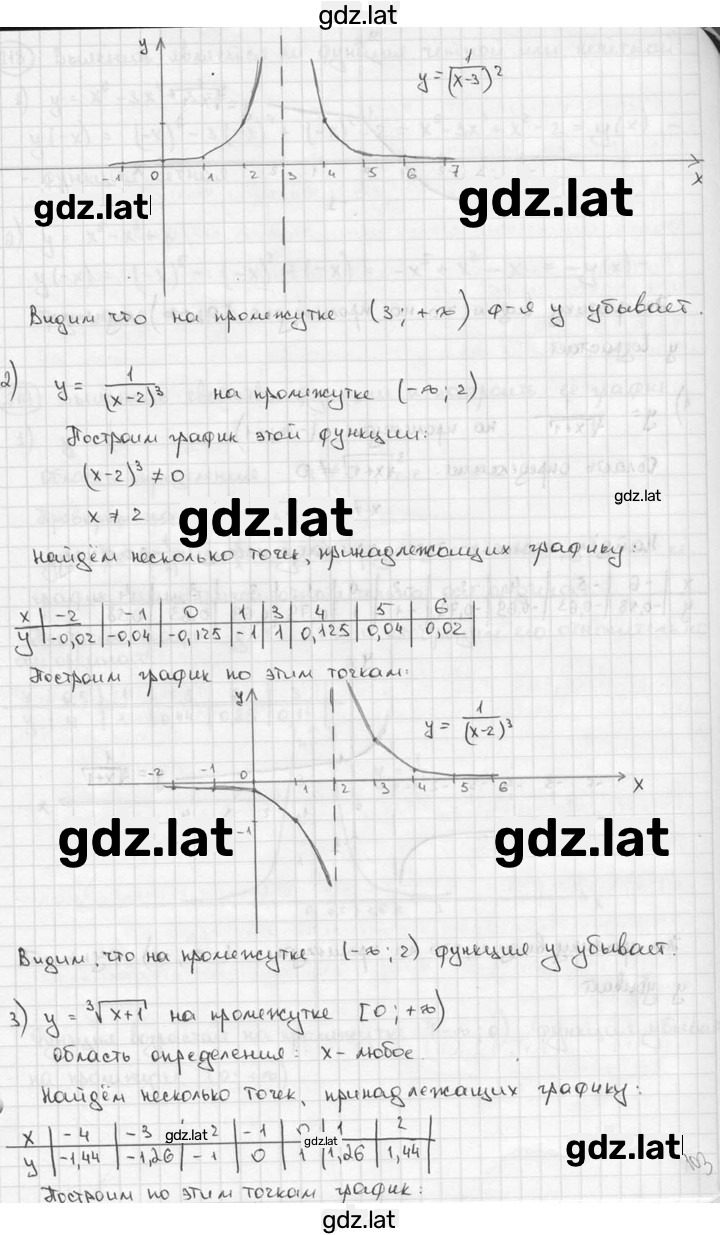 gdz.lat
y
y = 1/(x-3)²
-1 0 1 2 3 4 5 6 7
x
gdz.lat
gdz.lat
Видим что на промежутке (3; +∞) ф-я y убывает.
2) y = 1/(x-2)³ на промежутке (-∞; 2)
Построим график этой функции:
(x-2)³ ≠ 0
gdz.lat
x ≠ 2
gdz.lat
Найдём несколько точек, принадлежащих графику:
x | -2 | -1 | 0 | 1 | 3 | 4 | 5 | 6
y | -0,02 | -0,04 | -0,125 | -1 | 1 | 0,125 | 0,04 | 0,02
Построим график по этим точкам:
y
y = 1/(x-2)³
-2 -1 0 1 2 3 4 5 6 x
-1
gdz.lat
gdz.lat
Видим, что на промежутке (-∞; 2) функция y убывает.
3) y = ³√(x+1) на промежутке [0; +∞)
Область определения: x - любое.
Найдём несколько точек, принадлежащих графику:
x | -4 | -3 | gdz.lat 2 | -1 | 0 | 1 | 2
y | -1,44 | -1,26 | -1 | 0 | 1 | 1,26 | 1,44
gdz.lat
gdz.lat
103
Построим по этим точкам график:
gdz.lat